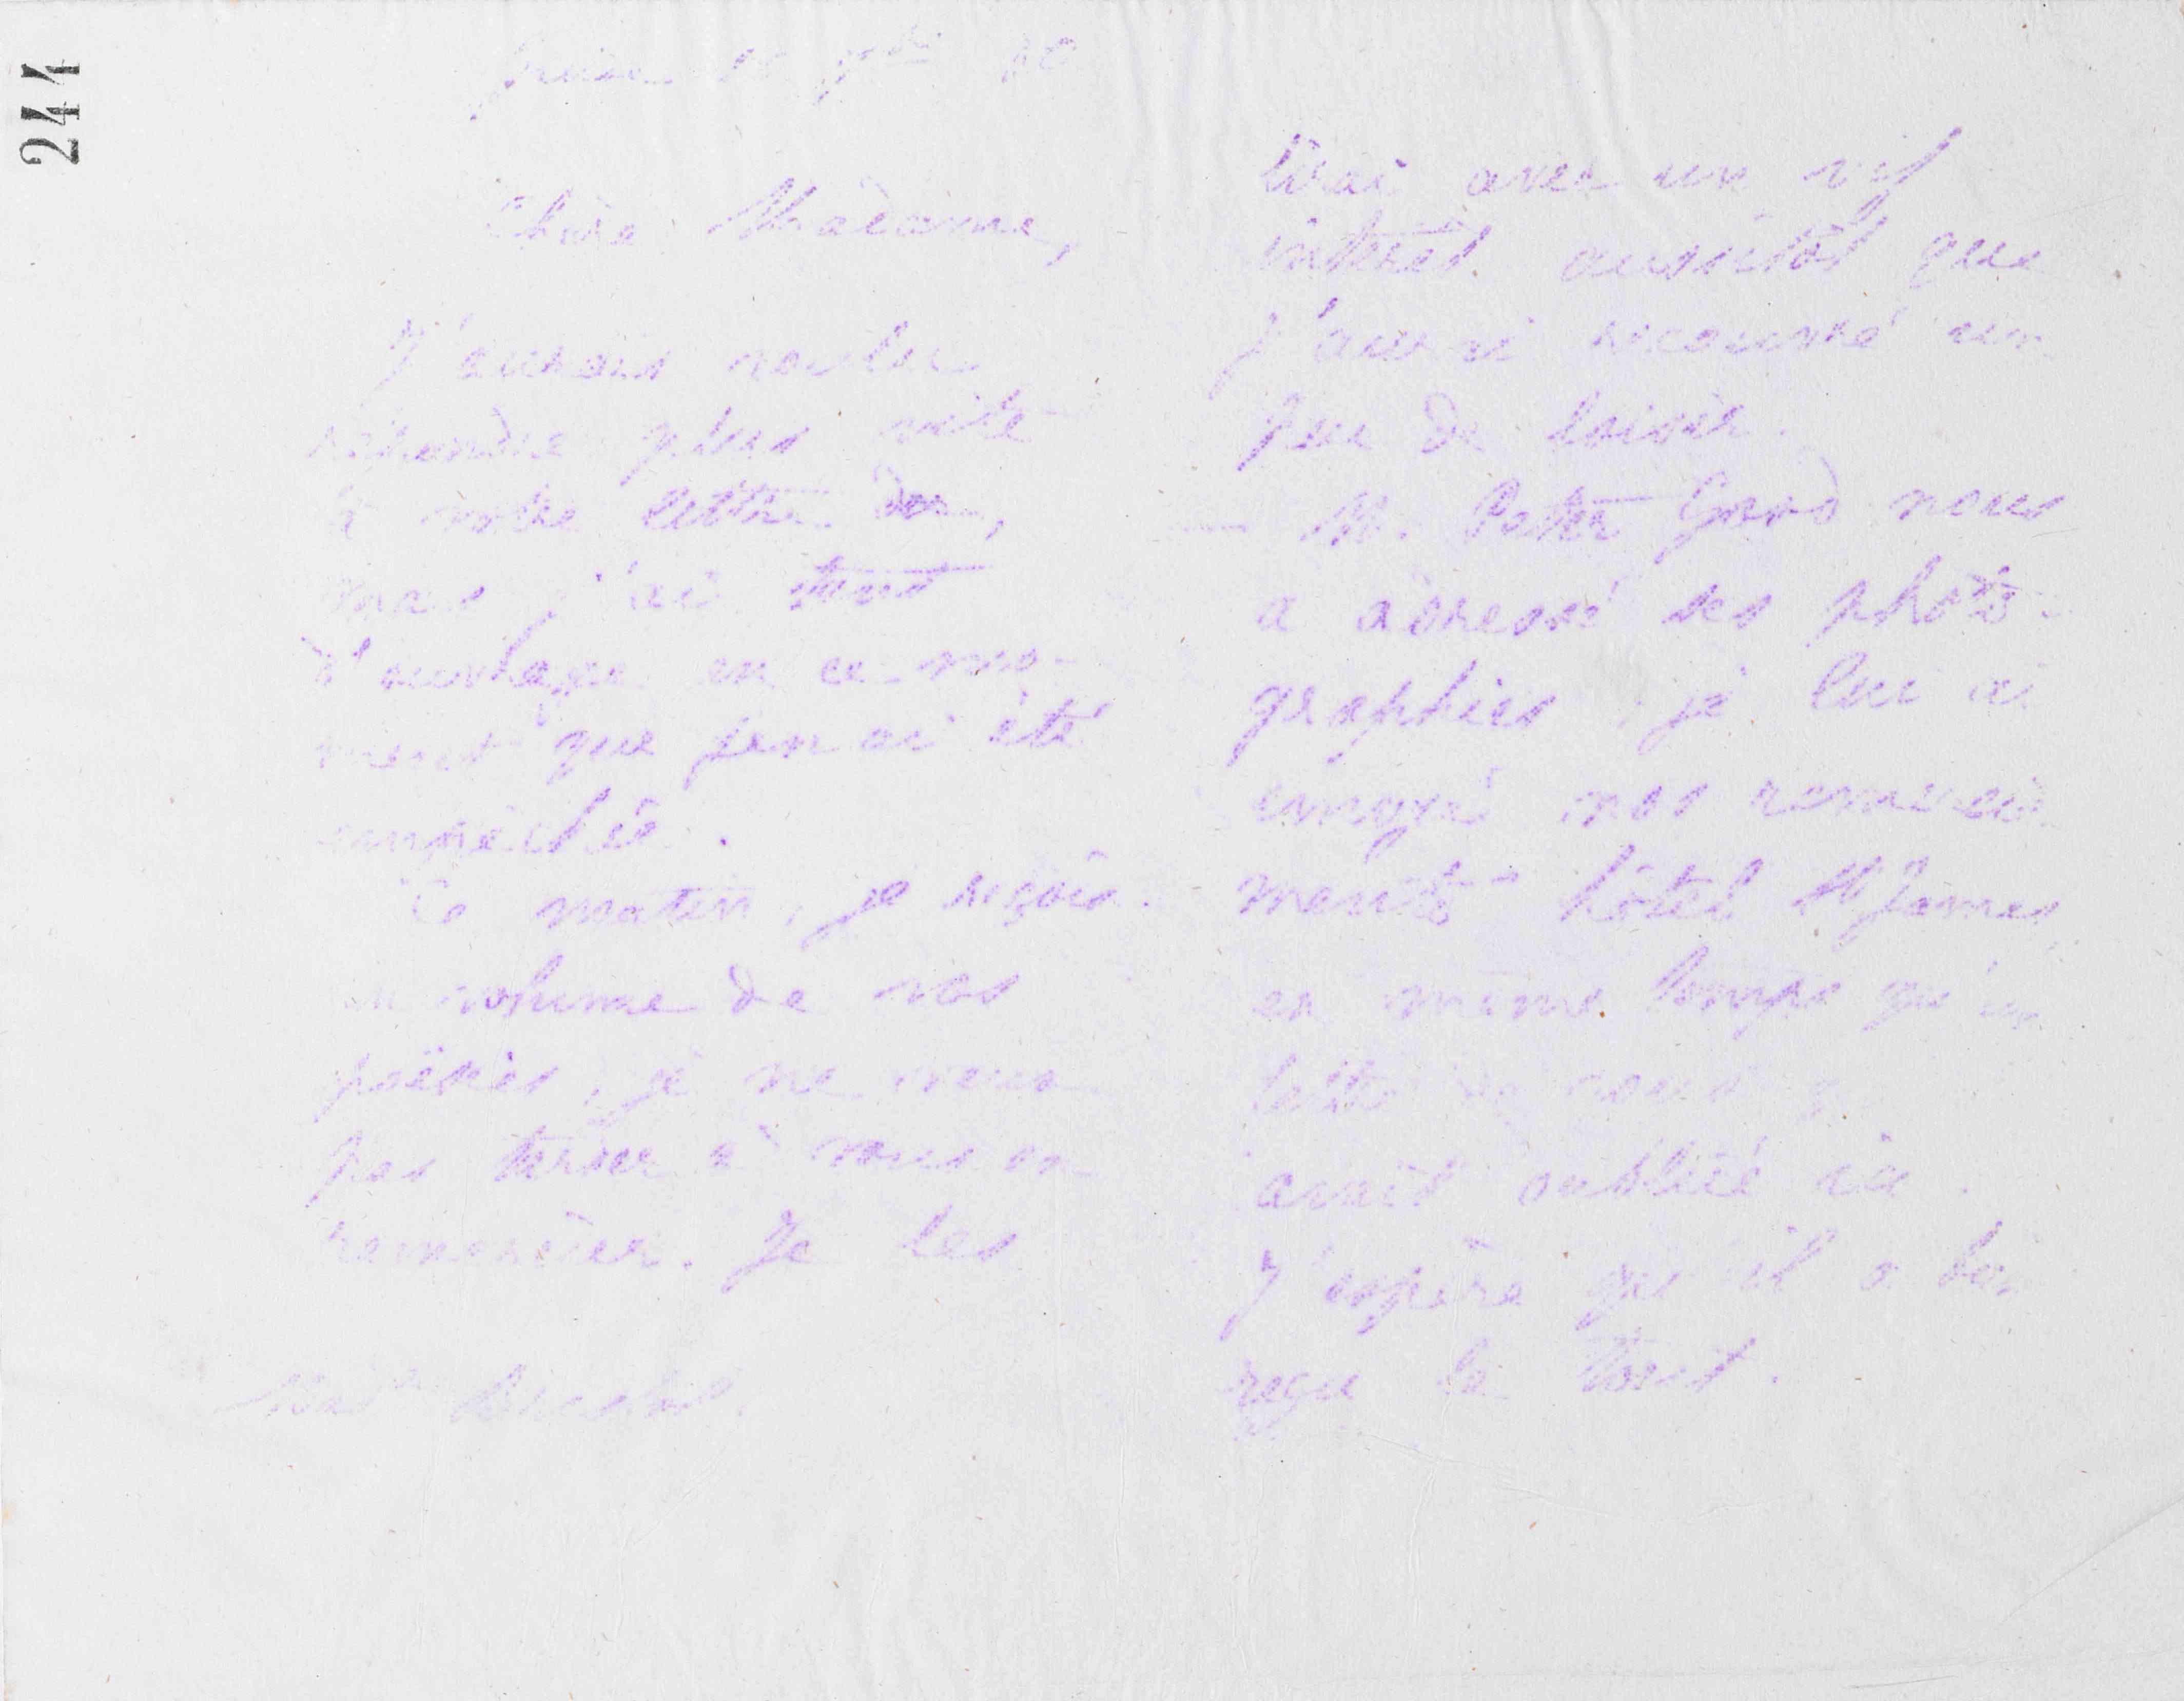 244
Guise 10 9bre 80
Chère Madame,
J'aurais voulu
répondre plus vite
à votre lettre
mais j'ai tant
d'ouvrage en ce mo-
ment que j'en ai été
empêchée.
Ce matin, je reçois
un volume de vos
poésies, je ne veux
pas tarder à vous en
remercier. Je les
Made
lirai avec un vif
intérêt aussitôt que
j'aurai recouvré un
peu de loisir.
— M. Peter Good nous
a adressé ses photo-
graphies ; je lui ai
envoyé nos remercie
ments hôtel St James
en même temps qu'un
lettre
avait oublié ici.
J'espère qu'il a bien
reçu le tout.